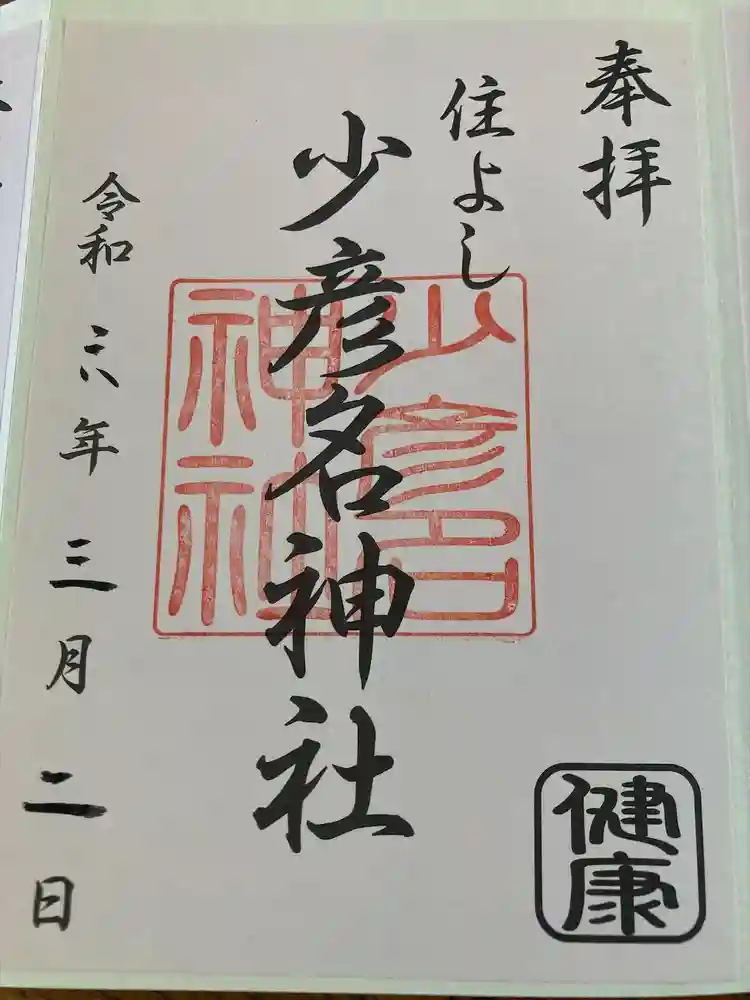 奉拝
住よし
少彦名神社
少彦名
神社
令和六年三月二日
健康